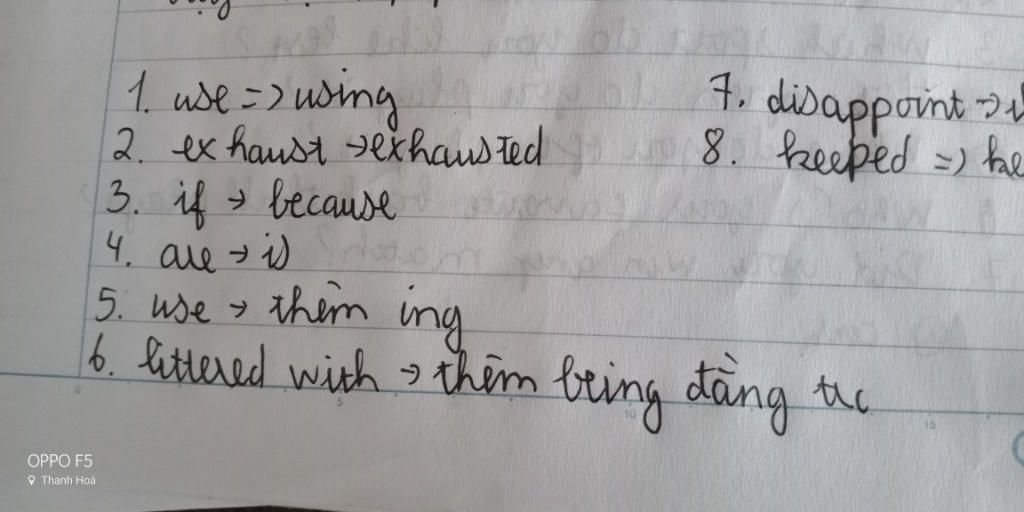 1. use => using
2. exhaust → exhausted
3. if → because
4. are → is
5. use → thêm ing
6. littered with → thêm being đằng
7. disappoint →
8. keeped =>
OPPO F5
Thanh Hoá